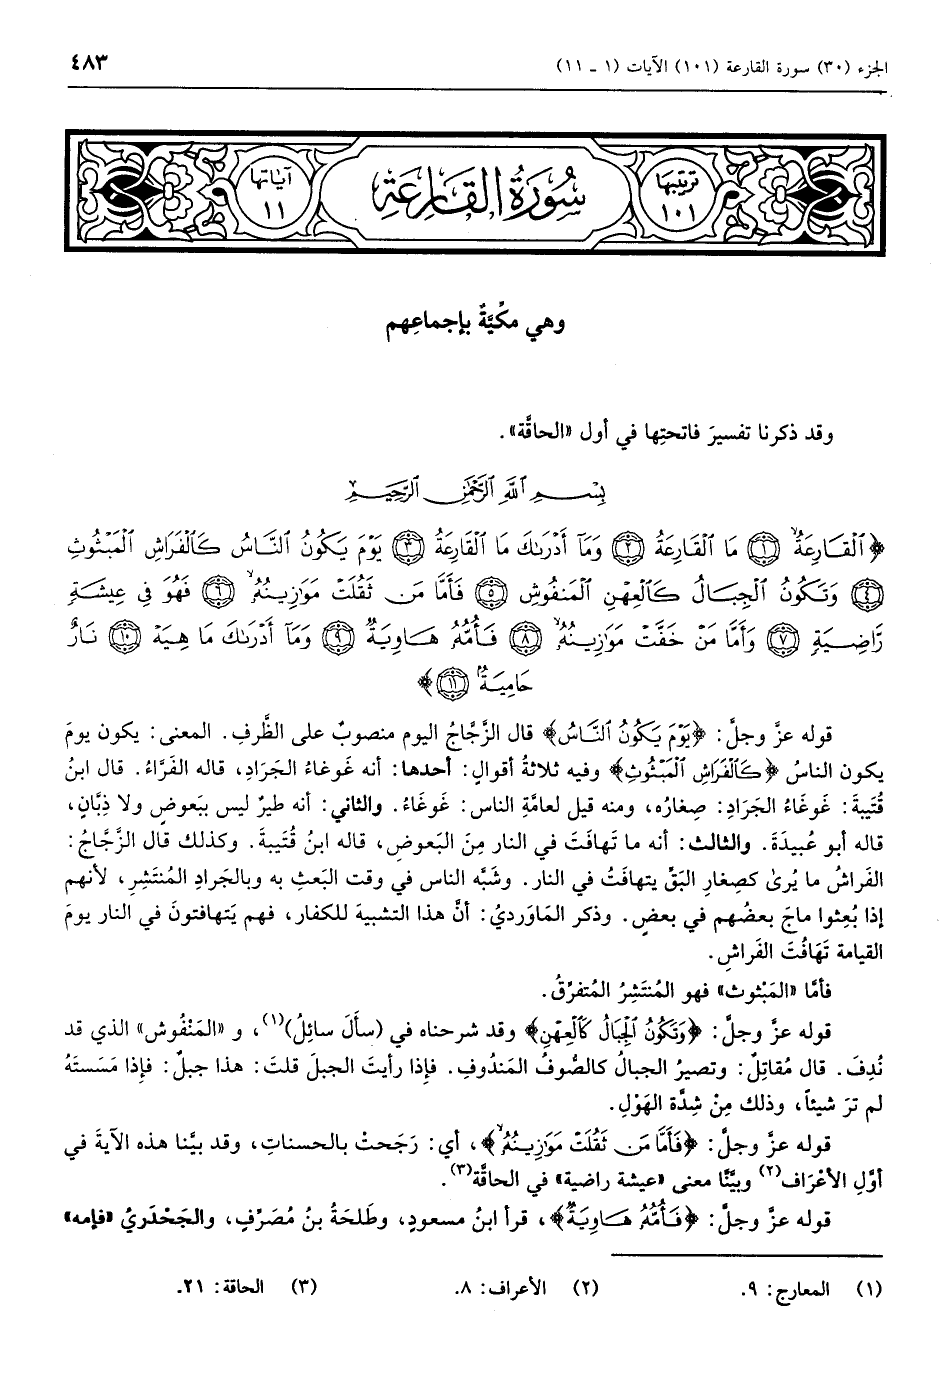 الجزء (٣٠) سورة القارعة (١٠١) الآيات (١ ـ ١١)
٤٨٣
ترتيبها ١٠١
سُورَةُ القَارِعَةِ
آياتها ١١
وهي مكيَّةٌ بإجماعِهم
وقد ذكرنا تفسيرَ فاتحتِها في أول «الحاقَّة».
بِسْمِ اللَّهِ الرَّحْمَٰنِ الرَّحِيمِ
﴿ٱلْقَارِعَةُ ۝١ مَا ٱلْقَارِعَةُ ۝٢ وَمَآ أَدْرَىٰكَ مَا ٱلْقَارِعَةُ ۝٣ يَوْمَ يَكُونُ ٱلنَّاسُ كَٱلْفَرَاشِ ٱلْمَبْثُوثِ
۝٤ وَتَكُونُ ٱلْجِبَالُ كَٱلْعِهْنِ ٱلْمَنفُوشِ ۝٥ فَأَمَّا مَن ثَقُلَتْ مَوَٰزِينُهُۥ ۝٦ فَهُوَ فِى عِيشَةٍ
رَّاضِيَةٍ ۝٧ وَأَمَّا مَنْ خَفَّتْ مَوَٰزِينُهُۥ ۝٨ فَأُمُّهُۥ هَاوِيَةٌ ۝٩ وَمَآ أَدْرَىٰكَ مَا هِيَهْ ۝١٠ نَارٌ
حَامِيَةٌۢ ۝١١﴾
قوله عزَّ وجلَّ: ﴿يَوْمَ يَكُونُ ٱلنَّاسُ﴾ قال الزَّجَّاجُ اليوم منصوبٌ على الظَّرفِ. المعنى: يكون يومَ
يكون الناسُ ﴿كَٱلْفَرَاشِ ٱلْمَبْثُوثِ﴾ وفيه ثلاثةُ أقوالٍ: أحدها: أنه غَوغاءُ الجَرَادِ، قاله الفَرَّاءُ. قال ابنُ
قُتَيبةَ: غَوغَاءُ الجَرَادِ: صِغارُه، ومنه قيل لعامَّةِ الناس: غَوغَاءُ. والثاني: أنه طيرٌ ليس ببَعوضٍ ولا ذِبَّانٍ،
قاله أبو عُبيدَةَ. والثالث: أنه ما تَهافَتَ في النار مِنَ البَعوضِ، قاله ابنُ قُتَيبةَ. وكذلك قال الزَّجَّاجُ:
الفَراشُ ما يُرىٰ كصِغارِ البَقِّ يتهافتُ في النار. وشَبَّه الناس في وقت البَعثِ به وبالجَرادِ المُنتَشِرِ، لأنهم
إذا بُعِثوا ماجَ بعضُهم في بعضٍ. وذكر المَاورديُ: أنَّ هذا التشبيهَ للكفار، فهم يَتهافتونَ في النار يومَ
القيامة تَهَافُتَ الفَراشِ.
فأمَّا «المَبْثوث» فهو المُنتَشِرُ المُتفرِّقُ.
قوله عزَّ وجلَّ: ﴿وَتَكُونُ ٱلْجِبَالُ كَٱلْعِهْنِ﴾ وقد شرحناه في (سأَلَ سائِلُ)(١)، و «المَنْفُوش» الذي قد
نُدِفَ. قال مُقاتِلٌ: وتصيرُ الجبالُ كالصُّوفُ المَندُوفِ. فإذا رأيتَ الجبلَ قلتَ: هذا جبلٌ: فإذا مَسَستَهُ
لم ترَ شيئاً، وذلك مِنْ شِدَّة الهَوْلِ.
قوله عزَّ وجلَّ: ﴿فَأَمَّا مَن ثَقُلَتْ مَوَٰزِينُهُۥ﴾، أي: رَجَحتْ بالحسناتِ، وقد بيَّنا هذه الآيةَ في
أوَّلِ الأعْرَاف(٢) وبيَّنَّا معنى «عيشة راضية» في الحاقَّة(٣).
قوله عزَّ وجلَّ: ﴿فَأُمُّهُۥ هَاوِيَةٌ﴾، قرأ ابنُ مسعودٍ، وطَلحَةُ بنُ مُصَرِّفٍ، والجَحْدَريُ «فإمه»
(١) المعارج: ٩.
(٢) الأعراف: ٨.
(٣) الحاقة: ٢١.